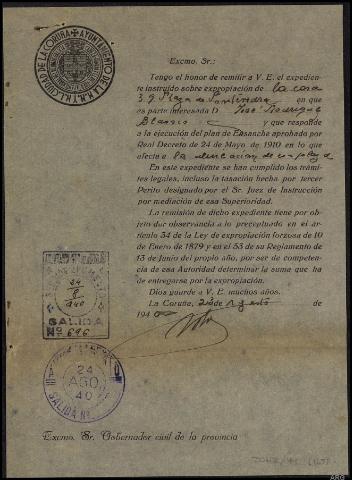 AYUNTAMIENTO DE LA M. N. Y M. L. CIUDAD DE LA CORUÑA
Excmo. Sr.:
Tengo el honor de remitir a V. E. el expediente
instruído sobre expropiación de la casa
Plaza de Pontevedra en que
es parte interesada D José Rodríguez
Blanco y que responde
a la ejecución del plan de Ensanche aprobado por
Real Decreto de 24 de Mayo de 1910 en lo que
afecta a la
En este expediente se han cumplido los trámi-
tes legales, incluso la tasación hecha por tercer
Perito designado por el Sr. Juez de Instrucción
por mediación de esa Superioridad.
La remisión de dicho expediente tiene por ob-
jeto dar observancia a lo preceptuado en el ar-
tículo 34 de la Ley de expropiación forzosa de 10
de Enero de 1879 y en el 53 de su Reglamento de
13 de Junio del propio año, por ser de competen-
cia de esa Autoridad determinar la suma que ha
de entregarse por la expropiación.
Dios guarde a V. E. muchos años.
La Coruña, 24 de Agosto de
1940
24
8
940
SALIDA
Nº 696
24
AGO
40
SALIDA Nº
Excmo. Sr. Gobernador civil de la provincia